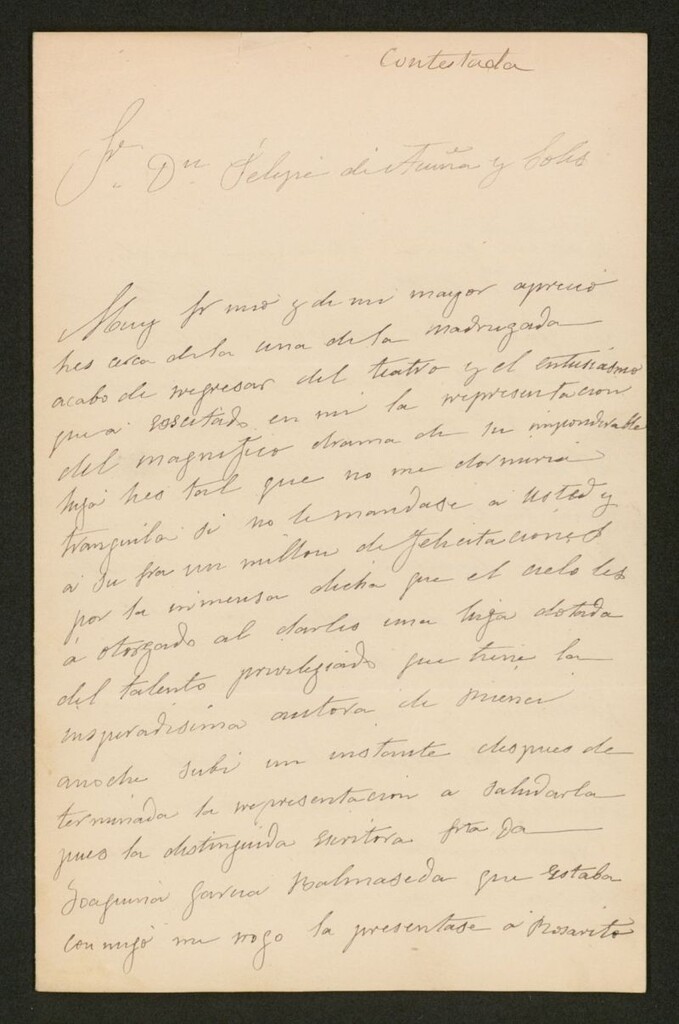 Contestada
Sr. Dn Felipe de Acuña y Solis
Muy Sr mio y de mi mayor aprecio
hes cerca de la una de la madrugada
acabo de regresar del teatro y el entusiasmo
que a escitado en mi la representacion
del magnifico drama de su imponderable
hija hes tal que no me dormiria
tranquila si no le mandase a Usted y
a su Sra un millon de felicitaciones
por la inmensa dicha que el cielo les
á otorgado al darles una hija dotada
del talento privilegiado que tiene la
inspiradisima autora de Rienci
anoche subi un instante despues de
terminada la representacion a saludarla
pues la distinguida escritora Srta Da
Joaquina Garcia Balmaseda que estaba
con migo me rogo la presentase á Rosarito